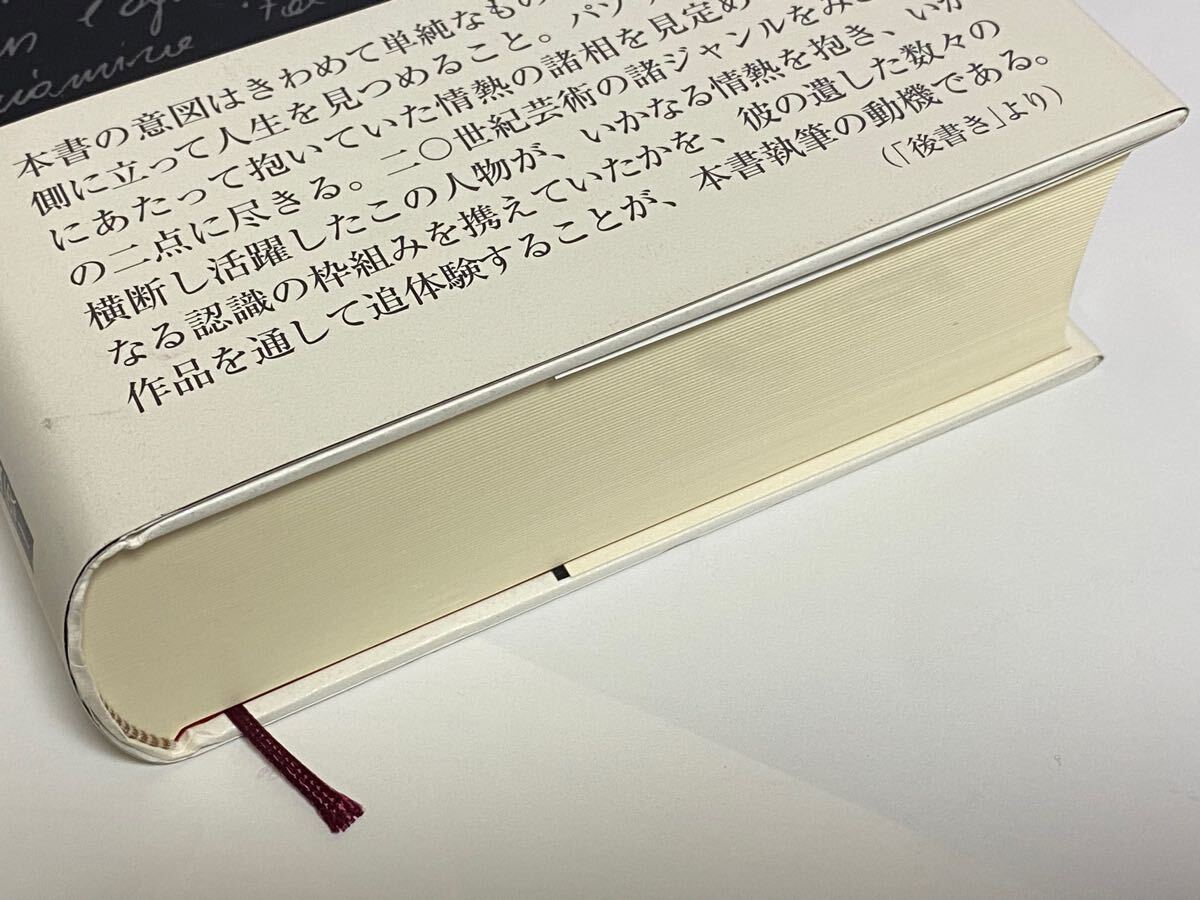 本書の意図はきわめて単純なもの
側に立って人生を見つめること。パゾ
にあたって抱いていた情熱の諸相を見定め
の二点に尽きる。二〇世紀芸術の諸ジャンルをみご
横断し活躍したこの人物が、いかなる情熱を抱き、いか
なる認識の枠組みを携えていたかを、彼の遺した数々の
作品を通して追体験することが、本書執筆の動機である。
(「後書き」より)